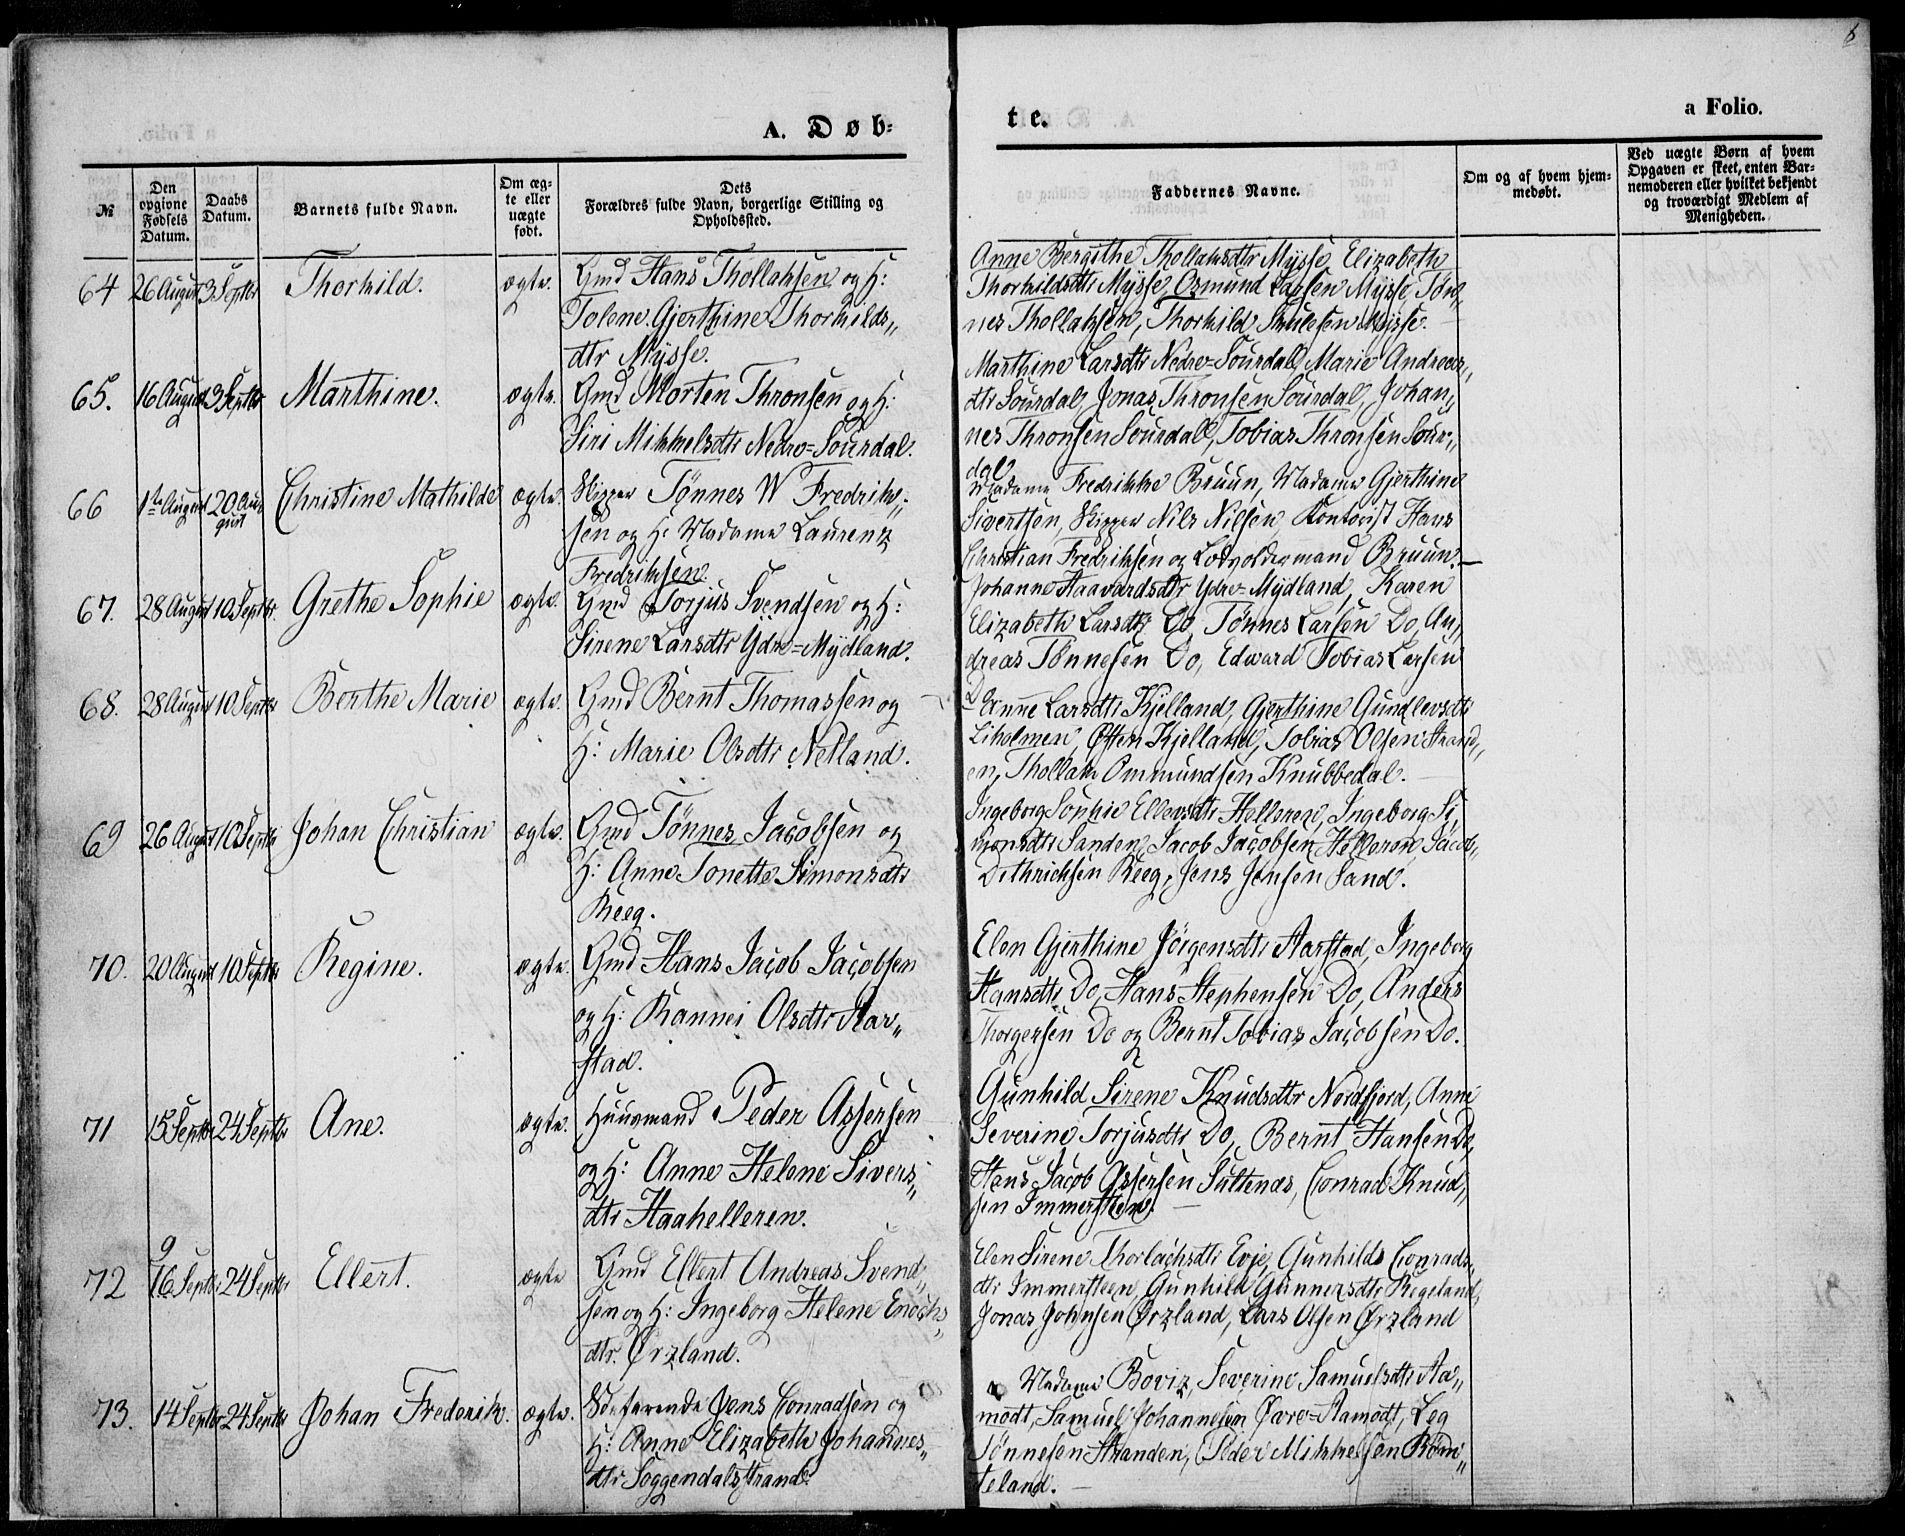 A. Døb-
№
Den opgivne Fødsels Datum.
Daabs Datum.
Barnets fulde Navn.
Om ægte eller uægte født.
Dets Forældres fulde Navn, borgerlige Stilling og Opholdssted.
64 26 August 3 Septbr Thorkild. ægte. Gmd Hans Thollaksen og H:
Tolene Gjerthine Thorkilds„
dtr Mysse.
65. 16 August 3 Septbr Marthine. ægte. Gmd Morten Thronsen og H:
Siri Mikkelsdtr Nedre=Sourdal.
66 1ste August 20 Au„
gust Christine Mathilde ægte. Skipper Tønnes W Fredrik„
sen og H: Madame Laurentz
Fredriksen.
67. 28 August 10 Septbr. Grethe Sophie ægte. Gmd Torjus Svendsen og H:
Sirene Larsdtr Ydre=Mydland.
68. 28 August 10 Septbr Berthe Marie ægte. Gmd Bernt Thomassen og
H: Marie Olsdtr Netland.
69 26 August 10 Septbr Johan Christian ægte. Gmd Tønnes Jacobsen og
H: Anne Tonette Simonsdtr
Reeg.
70. 20 August 10 Septbr Regine. ægte. Gmd Hans Jacob Jacobsen
og H: Rannei Olsdtr Aar„
stad.
71 15 Septbr 24 Septbr Ane. ægte. Huusmand Peder Assersen
og H: Anne Helene Sivers„
dtr Haahelleren.
72 9
16 Septbr 24 Septbr Ellert. ægte Gmd Ellert Andreas Svend„
sen og H: Ingeborg Helene Enochs„
dtr. Ørzland.
73. 14 Septbr 24 Septbr Johan Frederik. ægte. Søefarende Jens Conradsen og
H: Anne Elizabeth Johannes„
dtr Soggendalsstrand.
te.
a Folio.
Faddernes Navne.
Om og af hvem hjemmedøbt.
Ved uægte Børn af hvem Opgaven er skeet, enten Barnemoderen eller hvilket bekjendt og troværdigt Medlem af Menigheden.
Anne Bergithe Thollaksdtr Mysse, Elizabeth
Thorkildsdtr Mysse, Osmund Larsen Mysse, Tøn„
nes Thollaksen, Thorkild Mysse.
Marthine Larsdtr Nedre=Sourdal, Marie Andreas„
dtr Sourdal, Jonas Thronsen Sourdal, Johan„
nes Thronsen Sourdal, Tobias Thronsen Sour„
dal
Madame Fredrikke Bruun, Madame Gjerthine
Sivertsen, Skipper Nils Nilsen, Kontorist Hans
Christian Fredriksen og Lodsoldermand Bruun.
Johanne Haavardsdtr Ydre=Mydland, Karen
Elizabeth Larsdtr Do, Tønnes Larsen Do, An„
dreas Tønnesen Do, Edward Tobias Larsen
Do
Anne Larsdtr Kjelland, Gjerthine Gundlevsdtr
Liholmen, Kjelland, Tobias Olsen Strand„
en, Thollak Ommundsen Knubbedal.
Ingeborg Sophie Ellevsdtr Helleren, Ingeborg Si„
monsdtr Sanden, Jacob Jacobsen Helleren, Jacob
Dithrichsen Reeg, Jens Jensen Sand.
Elen Gjerthine Jörgensdtr Aarstad, Ingeborg
Hansdtr Do, Hans Stephensen Do, Anders
Thorgersen Do og Bernt Tobias Jacobsen Do.
Gunhild Sirene Knudsdtr Nordfjord, Anne
Severine Torjusdtr Do, Bernt Hansen Do,
Hans Jacob Assersen Sultenæs, Conrad Knud„
sen Immersteen.
Elen Sirene Thorlachsdtr Evje, Gunhild Conrads„
dtr Immersteen, Gunhild Gunnersdtr Regeland,
Jonas Johnsen Ørzland, Lars Olsen Ørzland
Madame Boviz, Severine Samuelsdtr Aa„
modt, Samuel Johannesen Øvre=Aamodt,
Tønnesen Stranden, Peder Mikkelsen Røm„
teland.